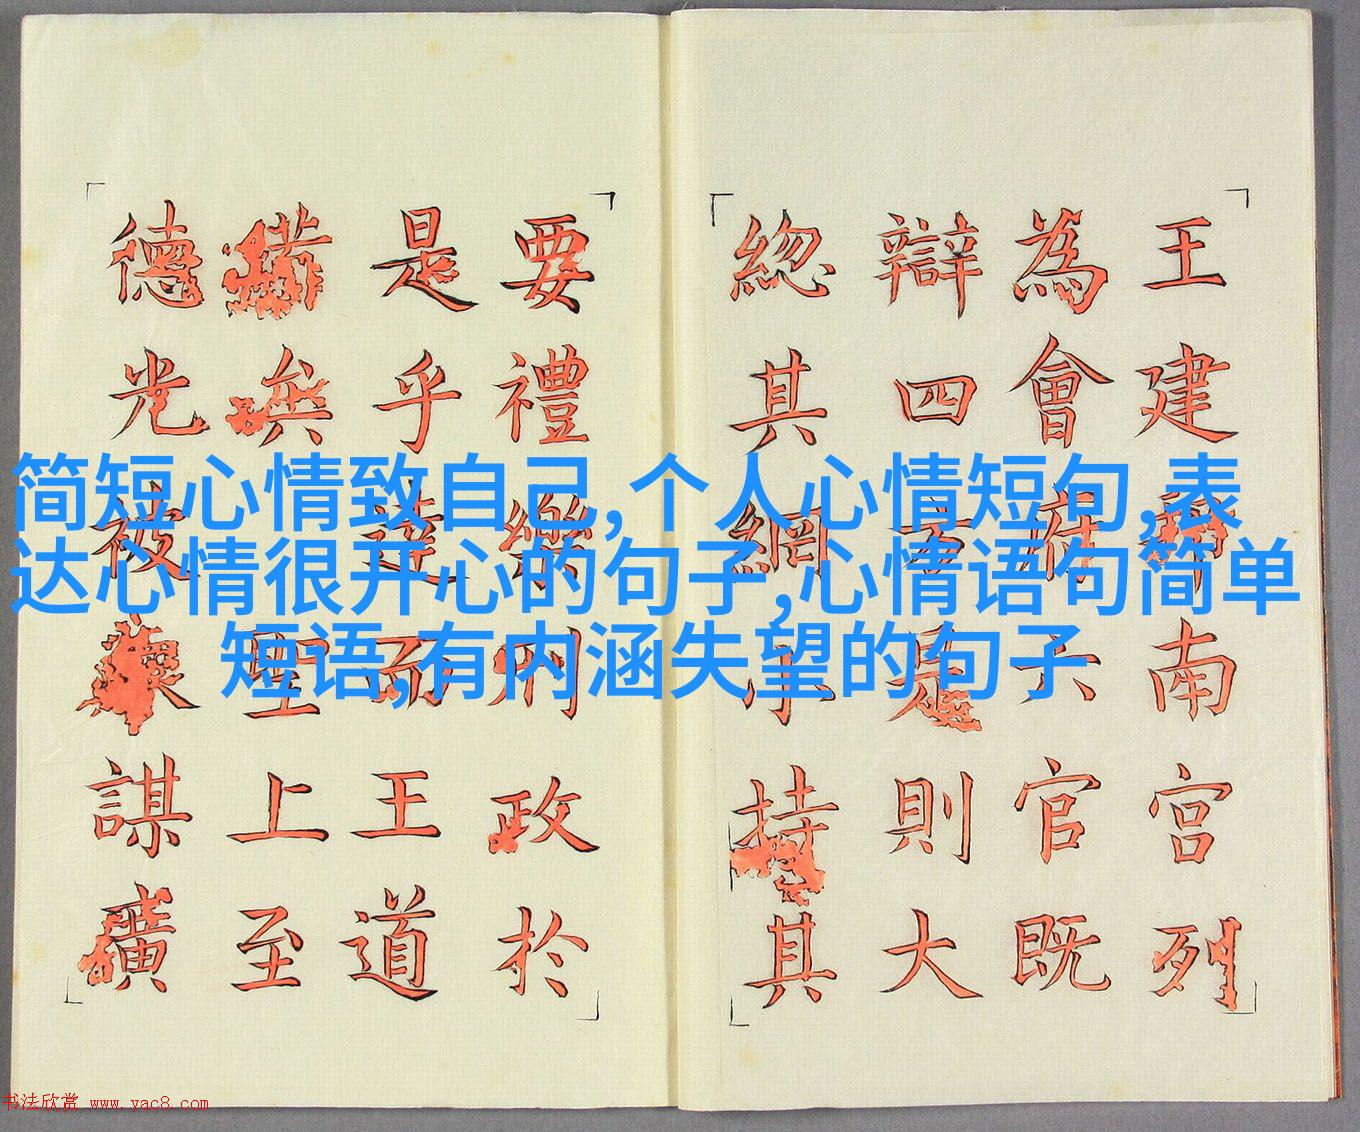 简短心情致自己,个人心情短句,表
达心情很开心的句子,心情语句简单
短语,有内涵失望的句子
王建南宫列
為會府六官既
辯四方是則大
總其綱小持其
要禮樂刑政於
是乎達而王道
備矣聖上至
德光被謀廣
书法欣赏 www.yac8.com